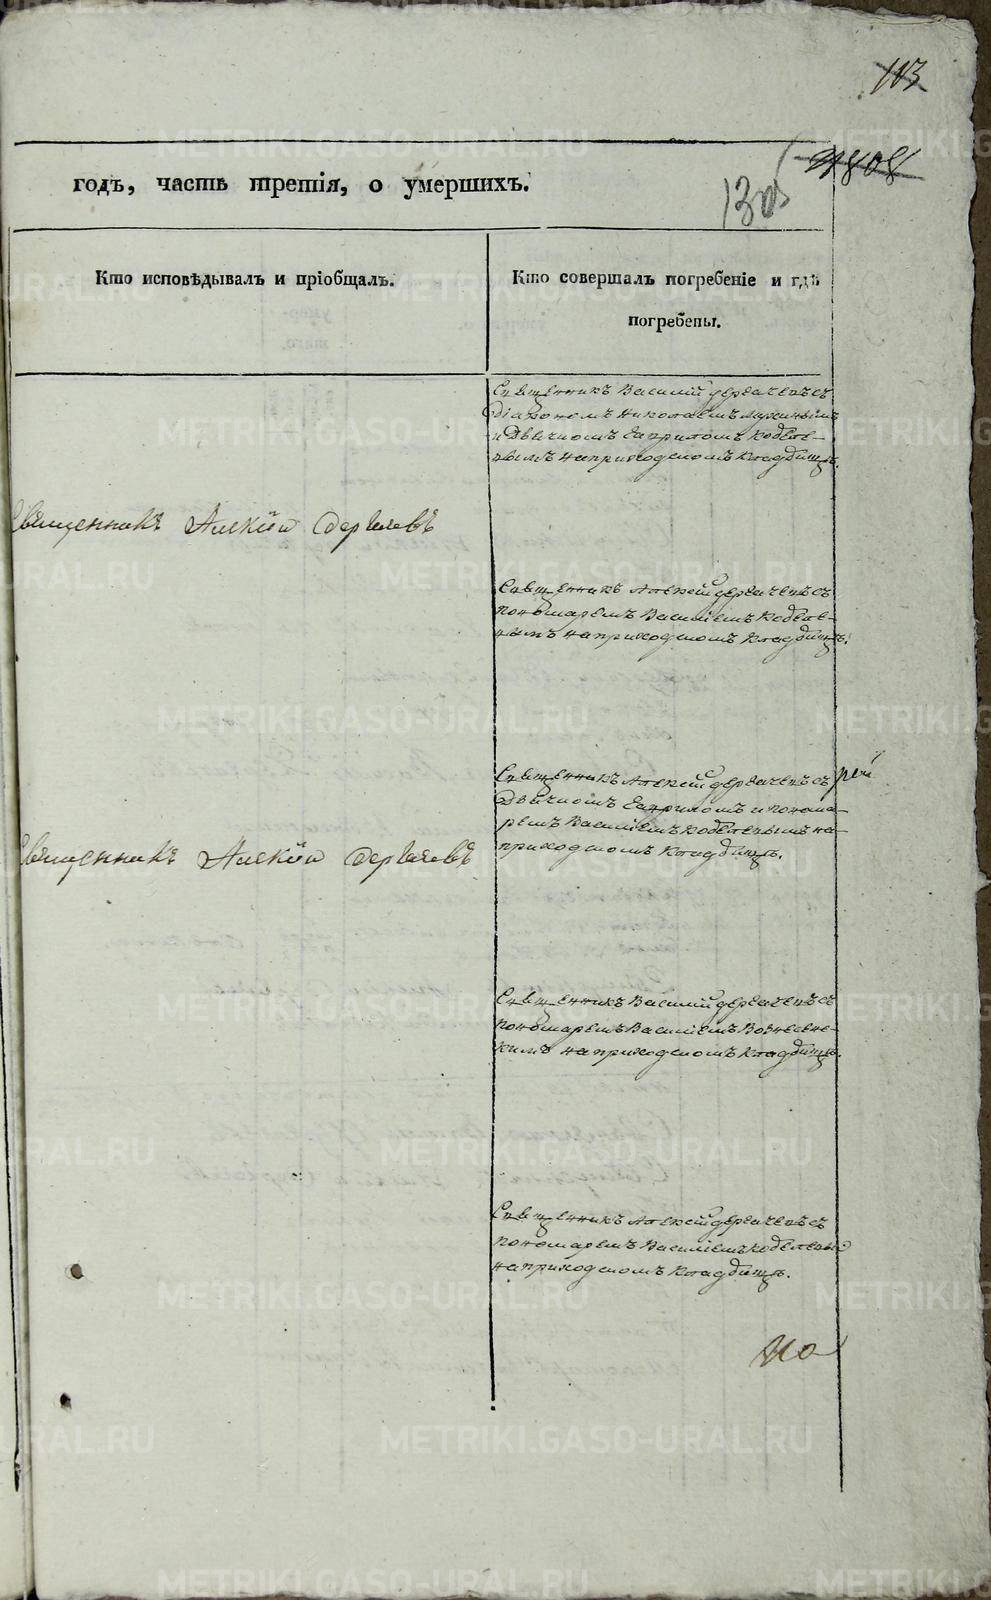 113
годъ, часть третія, о умершихъ.
Кто исповѣдывалъ и пріобщалъ.
Кто совершалъ погребеніе и гдѣ
погребены.
Священникъ Василій Дергачевъ съ
Діакономъ Николаемъ
и Дьячкомъ Гавриломъ Кобелe-
вымъ на приходскомъ кладбищѣ.
Священникъ Алексій Дергачевъ
Священникъ Алексей Дергачевъ съ
пономаремъ Василіемъ Кобеле-
вымъ на приходскомъ кладбищѣ.
Священникъ Алексей Дергачевъ съ
Дьячкомъ Гавриломъ и понома-
ремъ Василіемъ Кобелевымъ на
приходскомъ кладбищѣ.
Священникъ Алексій Дергачевъ
Священникъ Василій Дергачевъ съ
пономаремъ Василіемъ Вознесенс-
кимъ на приходскомъ кладбищѣ.
Священникъ Алексей Дергачевъ съ
пономаремъ Василіемъ Кобелевы
на приходскомъ кладбищѣ.
METRIKI.GASO-URAL.RU